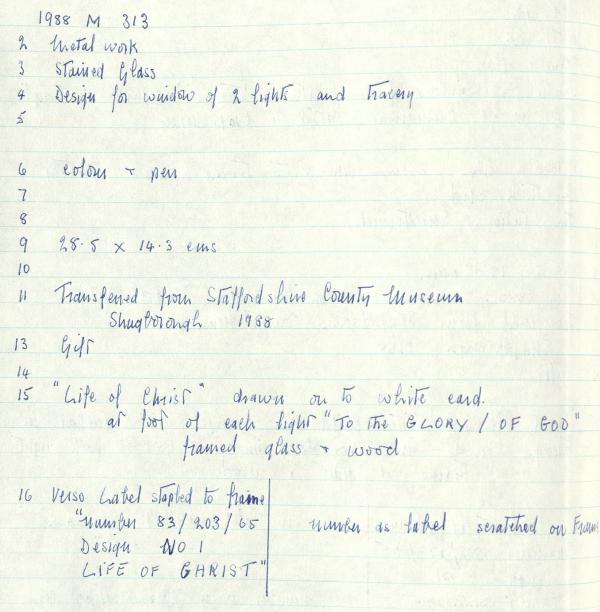 1988 M 313
2 Metal work
3 Stained Glass
4 Design for window of 2 lights and Tracery
5
6 colour + pen
7
8
9 28.5 x 14.3 cms
10
11 Transferred from Staffordshire County Museum
Shugborough 1988
13 Gift
14
15 "Life of Christ" drawn on to white card.
at foot of each light "To the GLORY / OF GOD"
framed glass + wood
16 Verso Label stapled to frame
"number 83/203/65
Design NO 1
LIFE OF CHRIST"
number as label scratched on Frame